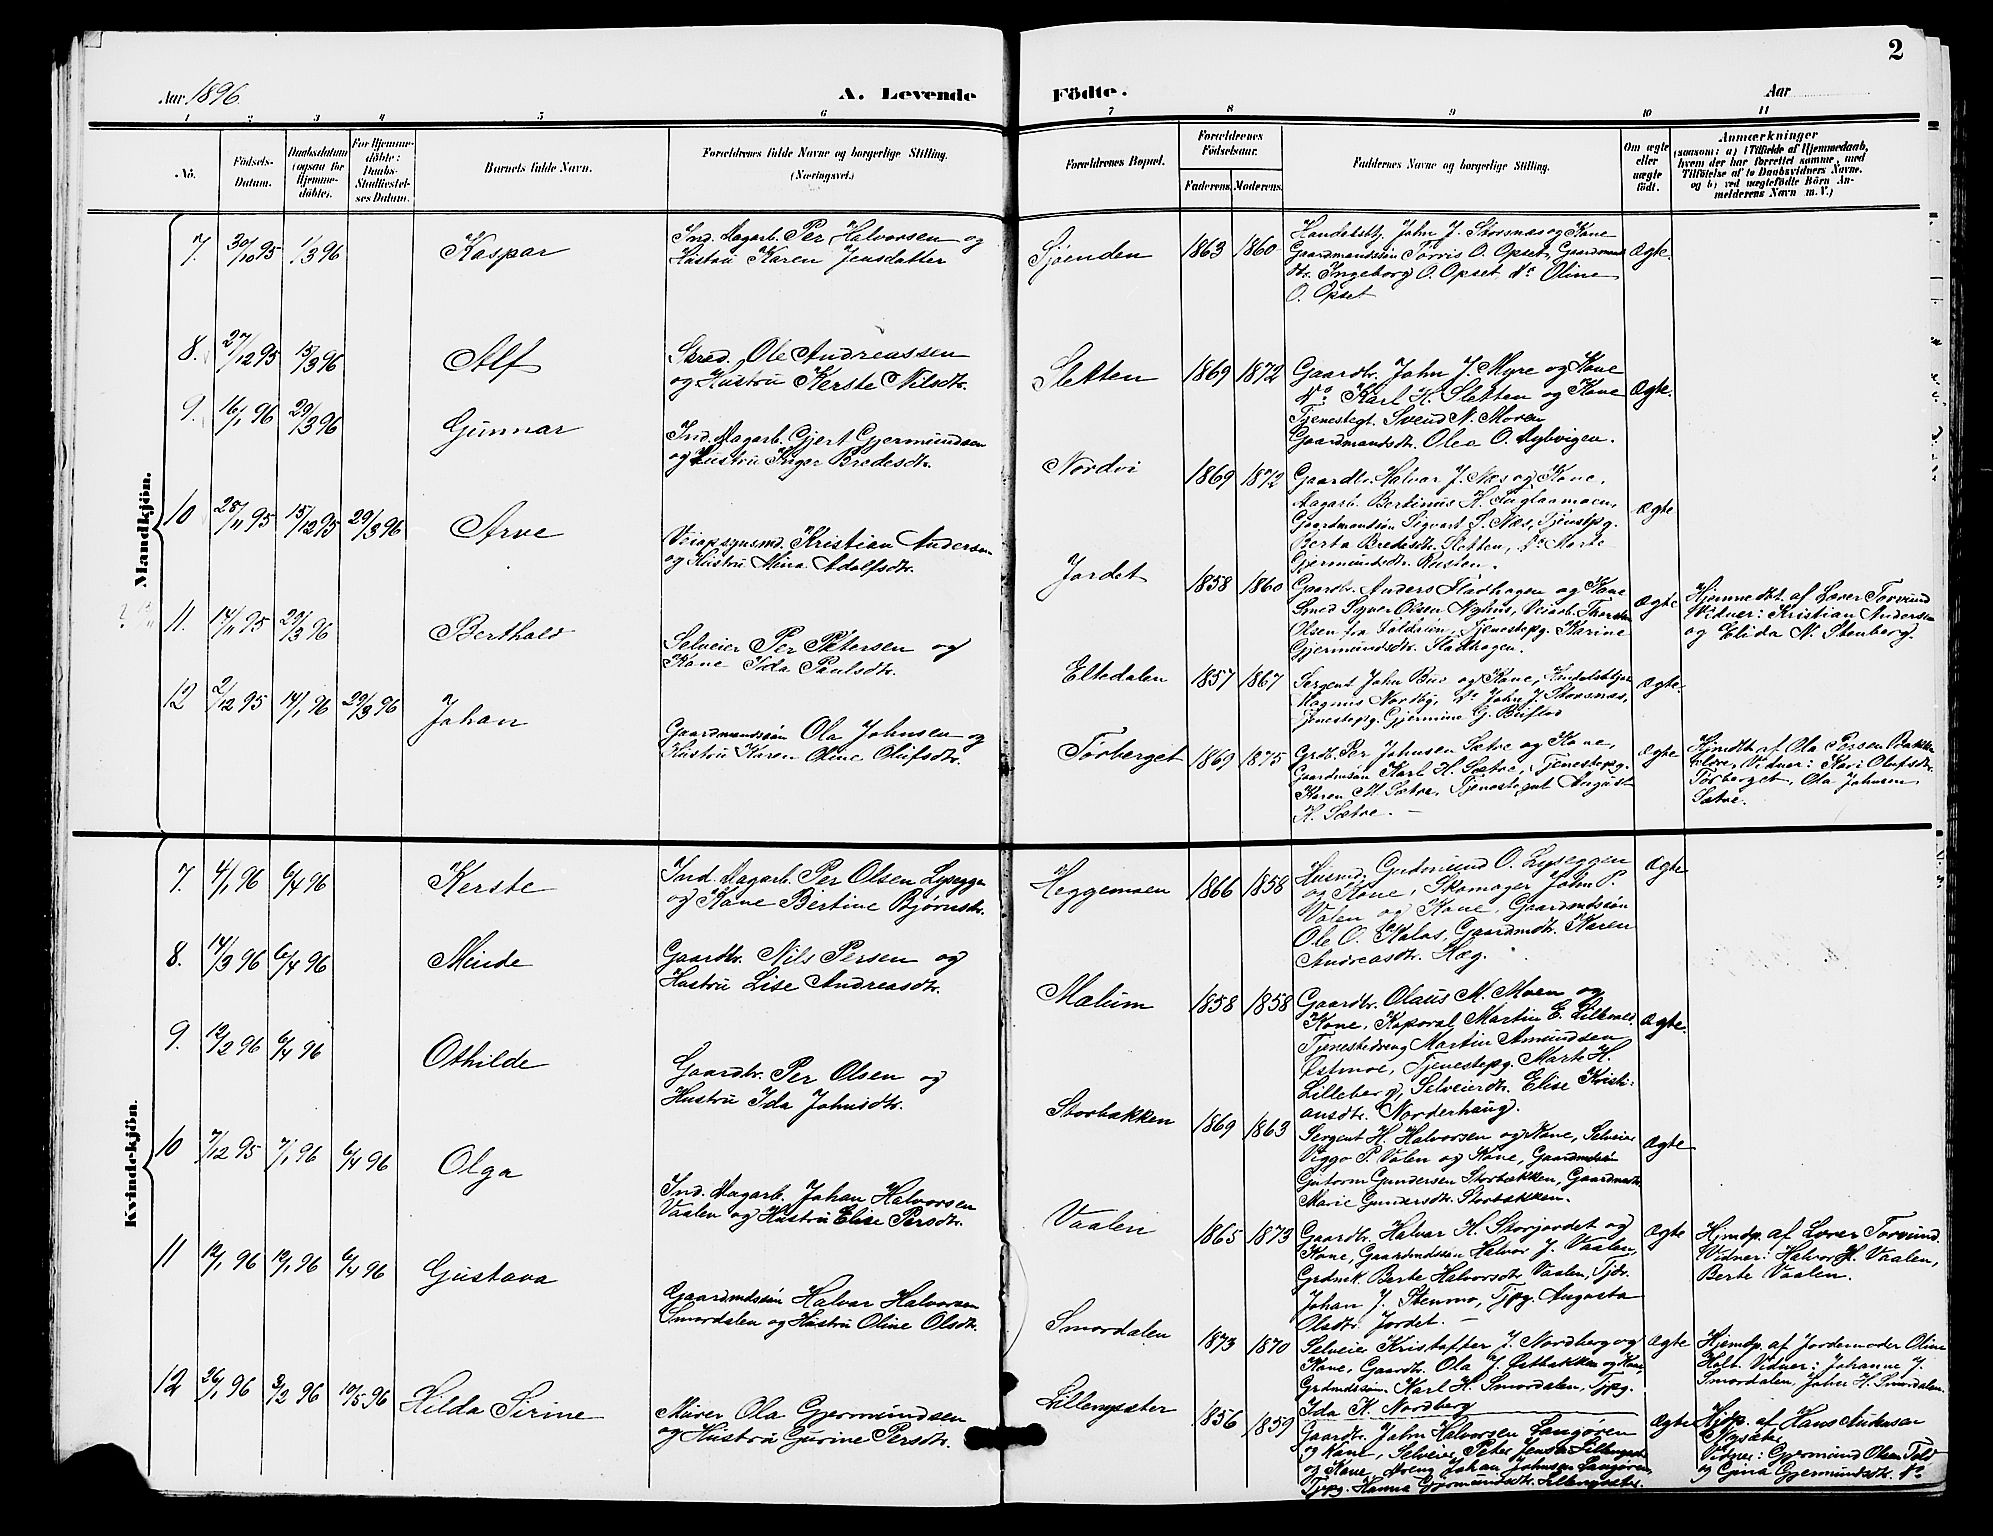 2
Aar 1896.
A. Levende
Födte.
Aar
1 2 3 4 5 6 7 8 9 10 11
No.
Födsels-
Datum.
Daabsdatum
(ogsaa for
Hjemme-
döbte).
For Hjemme-
döbte:
Daabs-
Stadfæstel-
ses Datum.
Barnets fulde Navn.
Forældrenes fulde Navne og borgerlige Stilling.
(Næringsvei.)
Forældrenes Bopæl.
Forældrenes
Födselsaar.
Faderens. Moderens.
Faddernes Navne og borgerlige Stilling.
Om ægte
eller
uægte
født.
Anmærkninger
(saasom: a) i Tilfælde af Hjemmedaab,
hvem der har forrettet samme, med
Tilföielse af to Daabsvidners Navne.
og b) ved uægtefödte Börn An-
melderens Navn m. V.)
Mandkjön.
7. 30/10 95 1/3 96 Kaspar
Ind. Aagarb. Per Halvorsen og
Hustru Karen Jensdatter
Sjøenden 1863 1860
Handelsbtj. John J. Storsnæs og Kone
Gaardmandssøn Torris O. Opset, Gaardmands
dtr. Ingeborg O. Opset do Oline
O. Opset
Ægte.
8. 27/12 95 15/3 96 Alf
Skred. Ole Andreassen
og Hustru Kerste Nilsdtr.
Sletten 1869 1872
Gaardbr. John J. Myre og Kone
do Karl H. Sletten og Kone
Tjenestegt. Svend N. Moren
Gaardmandsdtr. Olea O. Nybvigen.
Ægte.
9. 16/1 96 29/3 96 Gunnar
Ind. Aagarb. Gjert Gjermundsen
og Hustru Inger Bredesdtr.
Nordvi 1869 1872
Gaardbr. Halvar J. Næs og Kone,
Aagarb. Bertinus H. Fuglaamoen,
Gaardmandssøn Sigvart S. Næs, Tjenstpg.
Berta Bredesdtr. Sletten, do Marte
Gjermundsdtr. Rusten.
Ægte
10 28/11 95 15/12 95 29/3 96 Arve
Veiopsynsmd. Kristian Andersen
og Hustru Mina Adolfsdtr.
Jordet 1858 1860
Gaardbr. Anders Fladhagen og Kone
Smed Syver Olsen Nyhus, Veiarb. Thorsten
Olsen fra Foldalen, Tjenestepg. Karine
Gjermundsdtr. Fladhagen.
Ægte
Hjemmedbt. af Lærer Torvund
Vidner: Kristian Andersen
og Elida N. Stenberg.
11. 14/11 95 29/3 96 Berthold
Selveier Per Petersen og
Kone Ida Paulsdtr.
Eltedalen 1857 1867
Sergent John Bus og Kone, Handelsbtjer
Magnus Nordby, do John J. Storsnæs,
Tjenestepg. Gjermine G. Buflod
Ægte.
12 2/12 95 14/1 96 29/3 96 Johan
Gaardmandssøn Ola Johnsen og
Hustru Karen Oline Olufsdtr.
Tørberget 1869 1875
Grdb. Per Johnsen Sætre og Kone,
Gaardmsøn Karl H. Sætre, Tjenestepg.
Karen M. Sætre, Tjenestegut August
H. Sætre. —
Ægte
Hjmdbt. af Ola Persen Bakken
ældre, Vidner: Kari Olufsdtr.
Tørberget, Ola Johnsen
Sætre.
Kvindekjön.
7. 4/1 96 6/4 96 Kerste
Ind. Aagarb. Per Olsen Lyseggen
og Kone Bertine Bjørnsdtr.
Heggemoen 1866 1858
Husmd. Gudmund O. Lyseggen
og Kone, Skomager John P.
Volen og Kone, Gaardmdssøn
Ole O. Kolos, Gaardmdtr. Karen
Andreasdtr. Hæg.
Ægte
8. 14/3 96 6/4 96 Minde
Gaardbr. Nils Persen og
Hustru Lise Andreasdtr.
Mælum 1858 1858
Gaardbr. Olaus M. Moen og
Kone, Koporal Martin E. Lillemol.
Tjenestedreng Martin Amundsen
Østmoe, Tjenestepg. Marte H.
Lilleberg, Selveierdtr. Elise Kristi-
ansdtr. Norderhaug.
Ægte.
9. 12/2 96 6/4 96 Othilde
Gaardbr. Per Olsen og
Hustru Ida Johnsdtr.
Storbækken 1869 1863
Sergent H. Halvorsen og Kone, Selveier
Viggo P. Volen og Kone, Gaardmdsøn
Gutorm Gundersen Storbækken, Gaardmdtr.
Marie Gundersdtr. Storbækken.
Ægte
10 7/12 95 7/1 96 6/4 96 Olga
Ind. Aagarb. Johan Halvorsen
Vaalen og Hustru Elise Persdtr.
Vaalen 1865 1873
Gaardbr. Halvar H. Storjordet og
Kone, Gaardmdssøn Halvor J. Vaalen,
Grdmk. Berte Halvorsdtr. Vaalen, Tjdr.
Johan J. Stenmo, Tjpg. Augusta
Olsdtr. Jordet. —
Ægte
Hjmdp. af Lærer Torvund.
Vidner: Halvor H. Vaalen,
Berte Vaalen.
11 12/1 96 12/1 96 6/4 96 Gustava
Gaardmdssøn Halvar Halvorsen
Smordalen og Hustru Oline Olsdtr.
Smordalen 1873 1870
Selveier Kristoffer J. Nordberg og
Kone, Gaardbr. Ola J. Østbakken og Kone,
Grdmdssøn Karl H. Smordalen, Tjpg.
Ida K. Nordberg
Ægte
Hjemdp. af Jordemoder Oline
Holt. Vidner: Johanne J.
Smordalen, John H. Smordalen.
12 26/1 96 3/2 96 10/5 96 Hilda Sirine
Murer Ola Gjermundsen
og Hustru Gurine Persdtr.
Lillengsæter 1856 1859
Gaardbr. John Halvorsen Langøren
og Kone, Selveier Peter Jensen Lillengsæter
og Kone, Dreng Johan Johnsen Langøren,
Tjpg. Hanna Gjermundsdtr. Lillengsæter.
Ægte
Hjdp. af Hans Andersen
Nysæter
Vidner: Gjermund Olsen Told
og Gina Gjermundsdtr. do